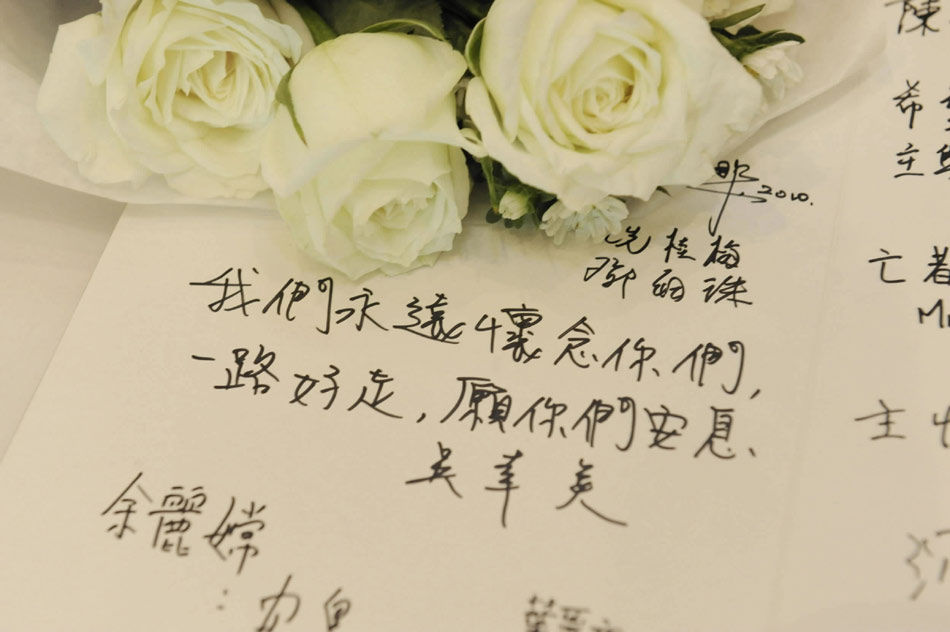 2010.
冼桂梅
鄧的珠
我們永遠懷念你們,
一路好走,願你們安息、
吳華美
余麗嫦
陳
希
主
亡者
主